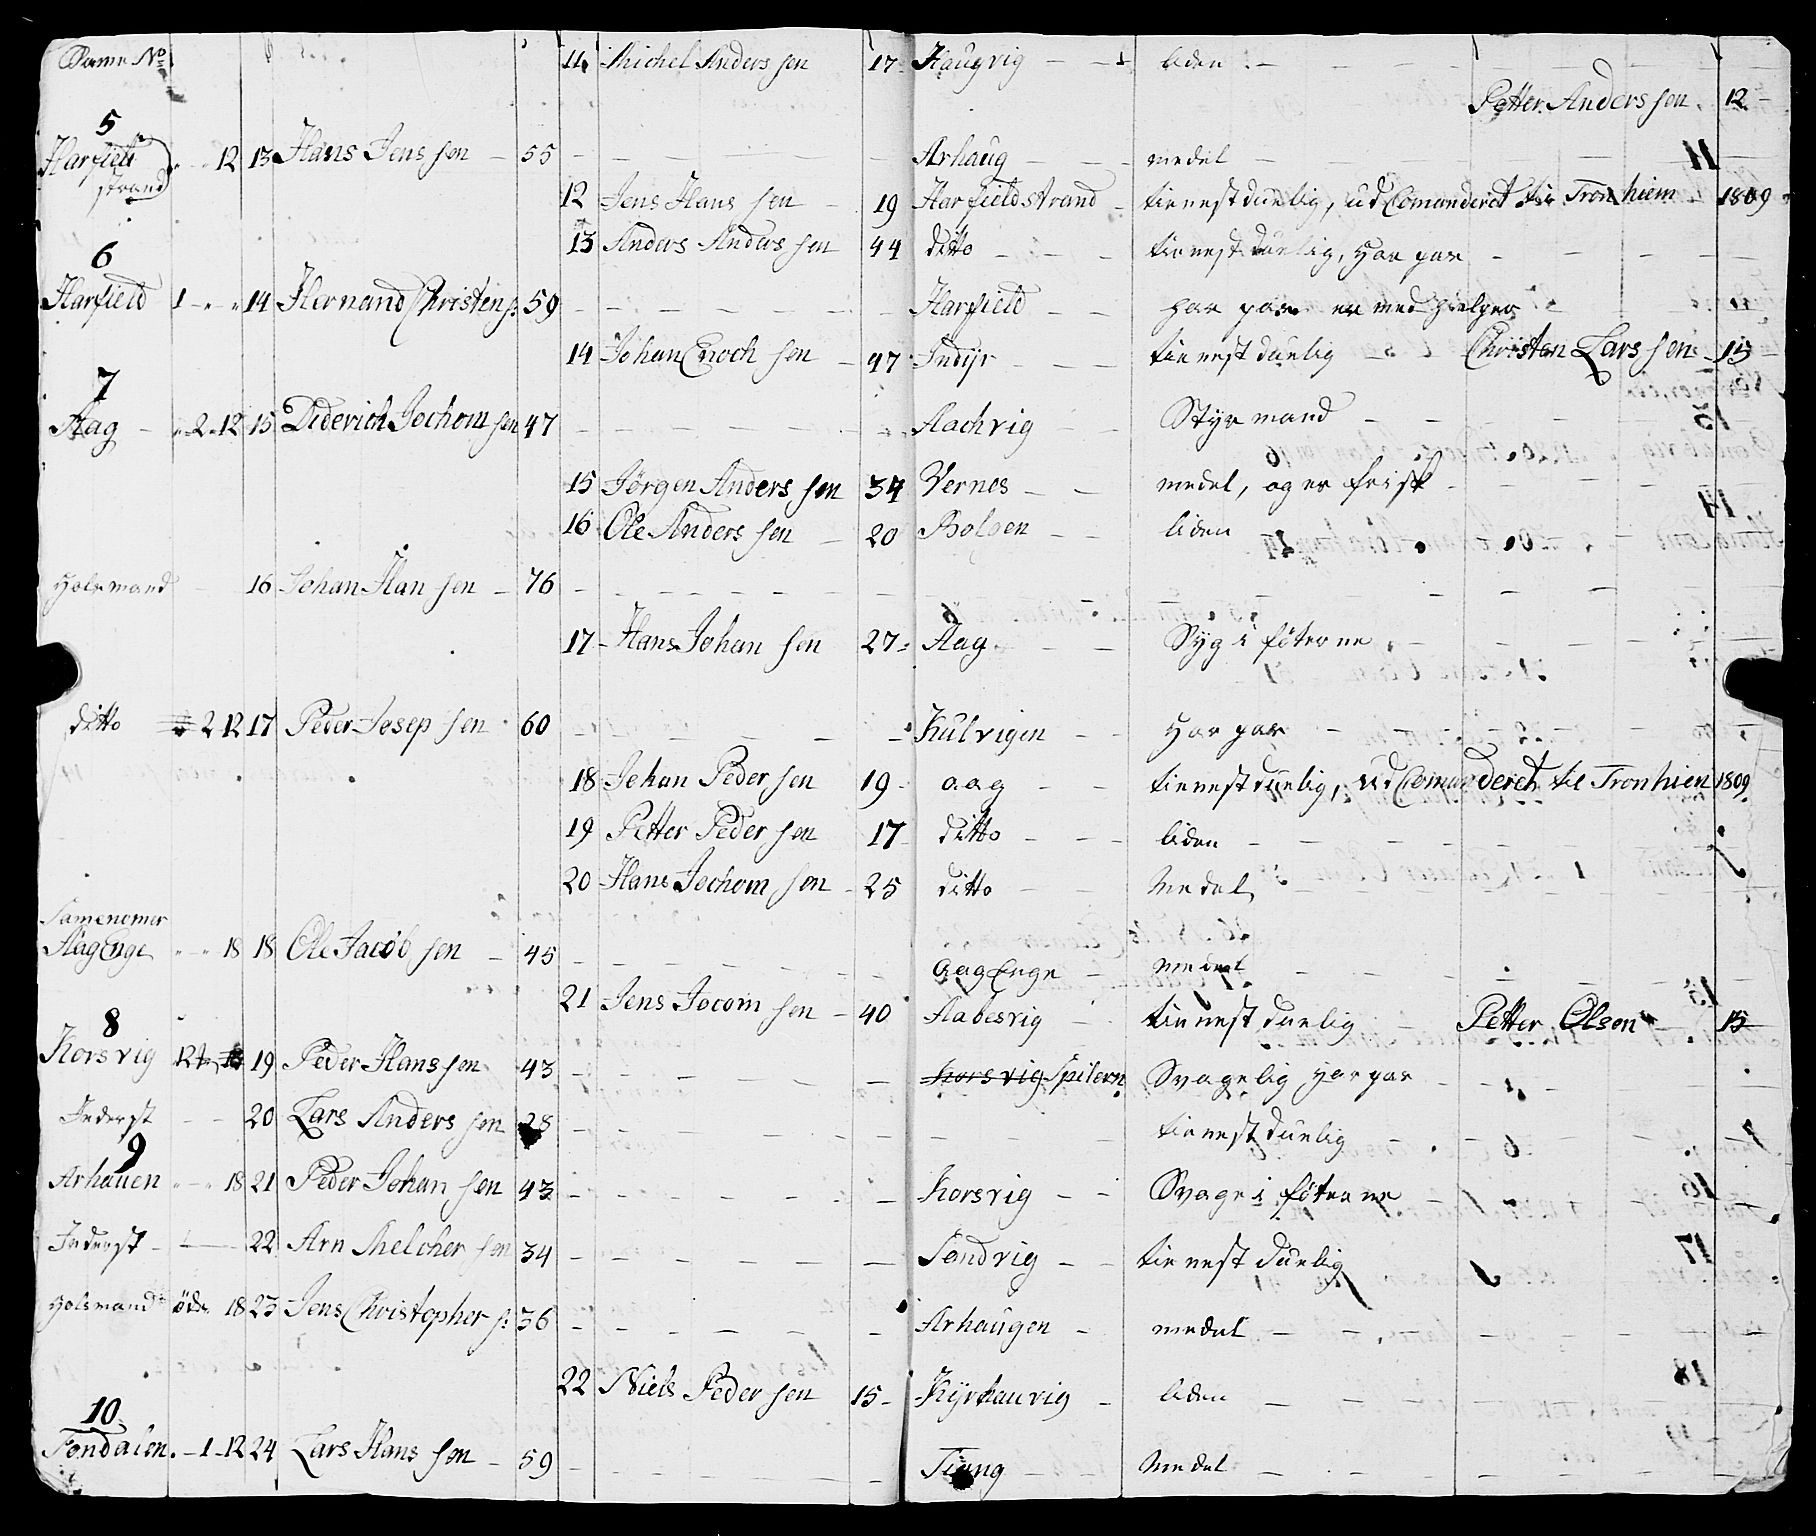 Same No 11 Michel Anders sen 17 Haugvig liden
Petter Anders sen 12
5
Harfield strand 12 13 Hans Jens sen 55 Arhaug medel
12 Jens Hans sen 19 Harfieldstrand tienestduelig, ud Comanderet til Tronhiem 1809
13 Anders Anders sen 44 ditto tienestduelig, har par
6
Harfield 1 14 Hernand Christen s: 59 Harfield har par er medhielper
14 Johan Enoch sen 47 Indyr tienestduelig Christen Lars sen 15
7
Aag 2 12 15 Diderich Jochom sen 47 Aachvig Styrmand
15 Jørgen Anders sen 34 Vernes medel, og er frisk
16 Ole Anders sen 20 Bolgen liden
Holsmand 16 Johan Han sen 76
17 Hans Johan sen 27 Aag Syg i føterne
ditto 2 12 17 Peder Josep sen 60 Kulvigen Har par
18 Johan Peder sen 19 aag tienestduelig, ud Comanderet til Tronhiem 1809
19 Petter Peder sen 17 ditto liden
20 Hans Jochom sen 25 ditto Medel
Samenomer
Aag Enge 18 18 Ole Jacob sen 45 Aag Enge Medel
21 Jens Jocom sen 40 Aabesvig tienestduelig Petter Olsen 15
8
Korsvig 12 19 Peder Hans sen 43 Korsvig Spilern Svagelig har par
Inderst 20 Lars Anders sen 28 tienestduelig
9
Arhauen 18 21 Peder Johan sen 43 Korsvig Svage i føterne
Inderst 22 Arn Melcher sen 34 Sandvig tienestduelig
Holsmand øde 18 23 Jens Christopher s: 36 Arhaugen medel
22 Niels Peder sen 15 Kyrhauvig liden
10
Fondalen 1 12 24 Lars Hans sen 59 Tiong Medel